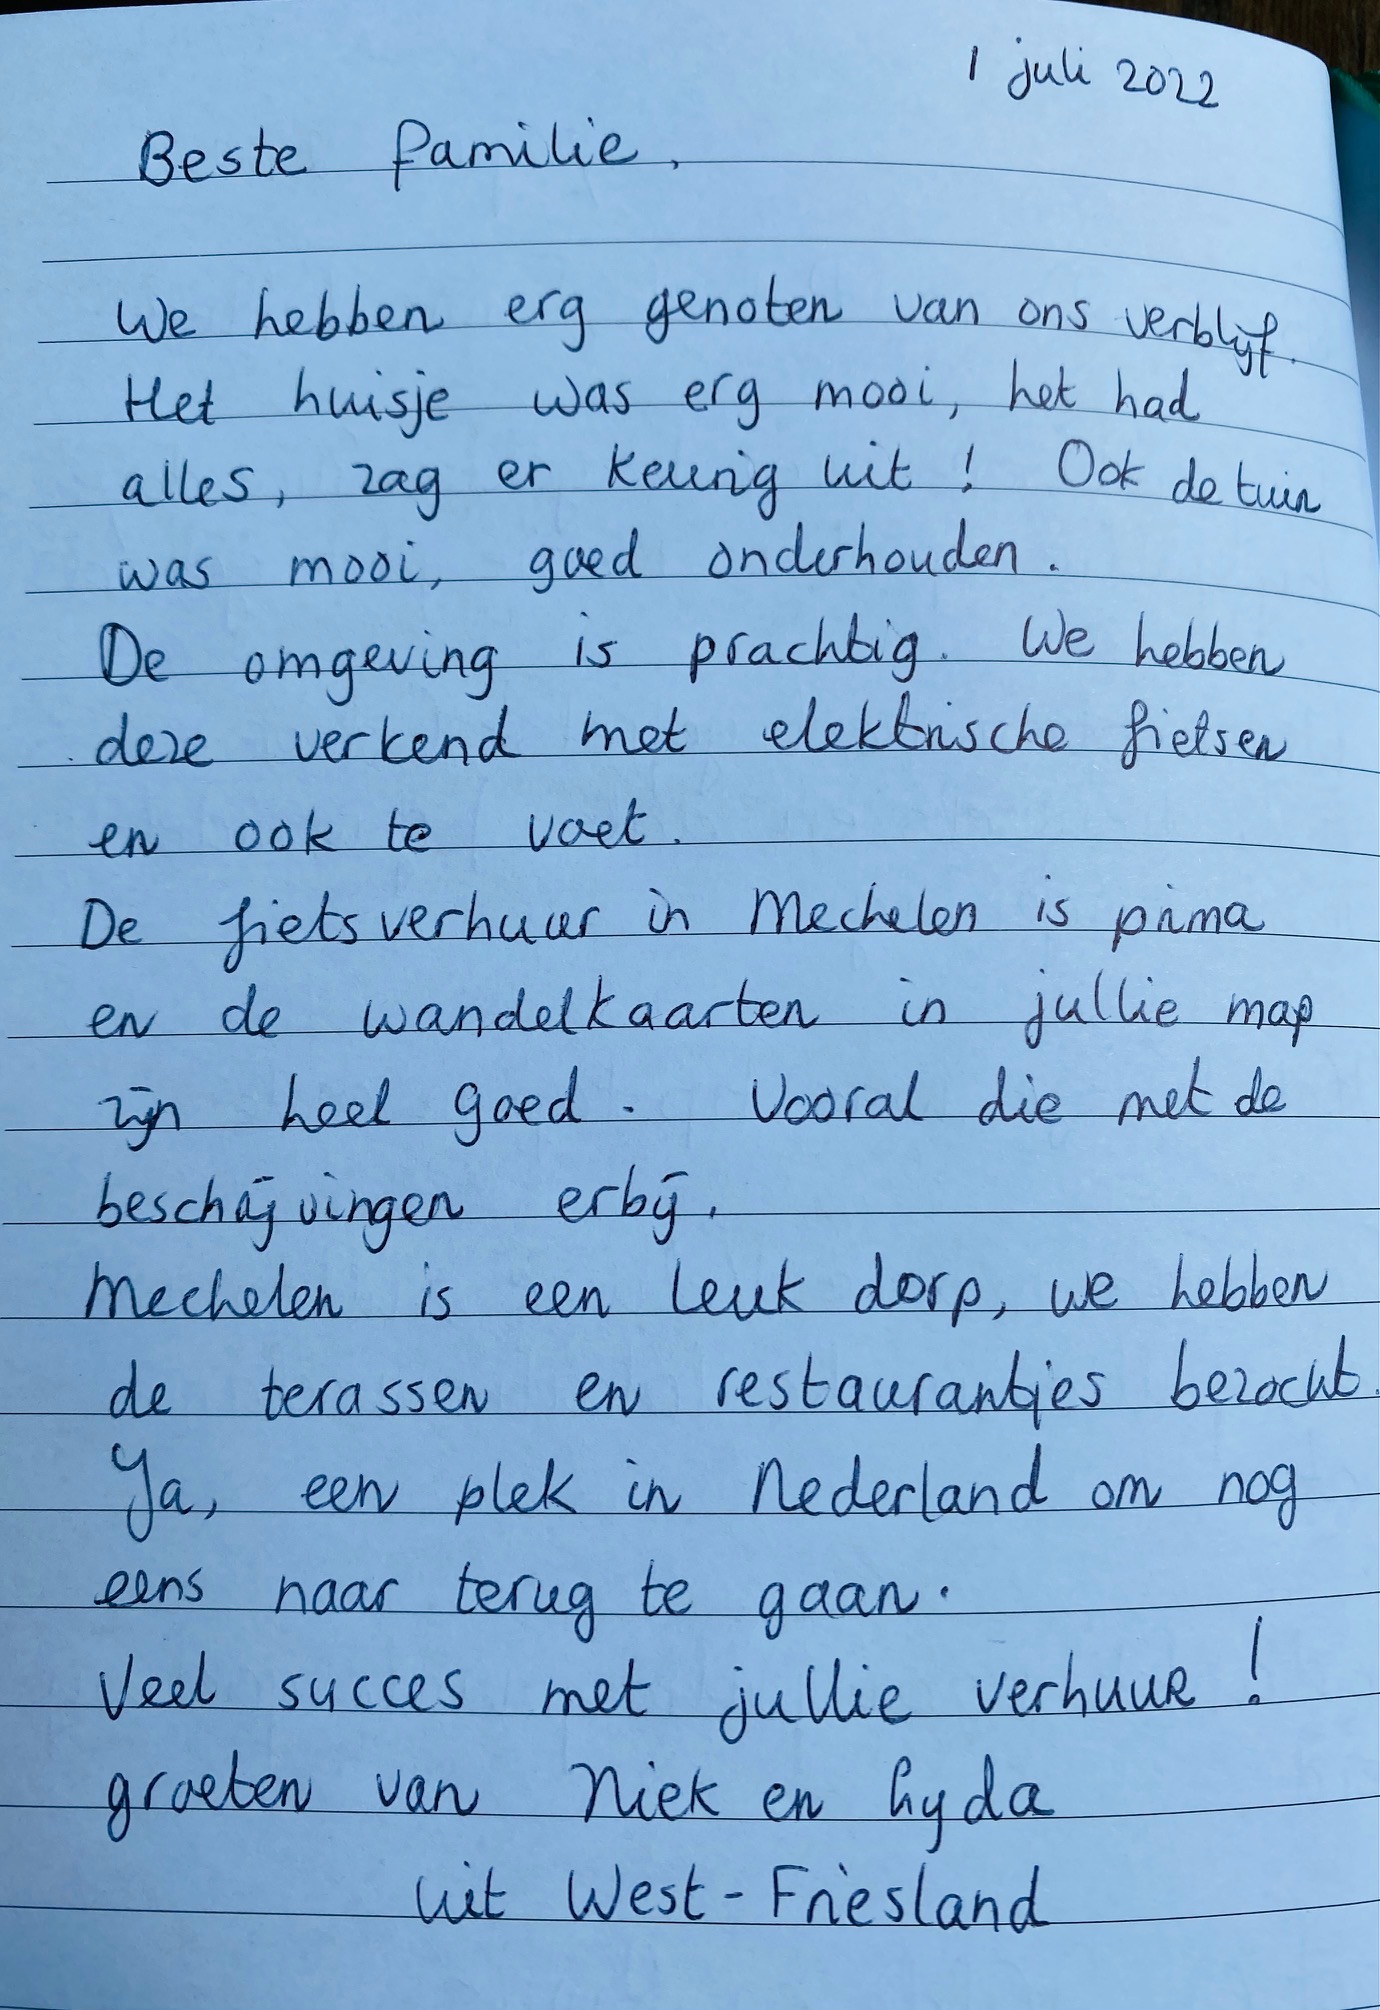 1 juli 2022
Beste familie,
We hebben erg genoten van ons verblijf.
Het huisje was erg mooi, het had
alles, zag er keurig uit! Ook de tuin
was mooi, goed onderhouden.
De omgeving is prachtig. We hebben
deze verkend met elektrische fietsen
en ook te voet.
De fietsverhuur in Mechelen is prima
en de wandelkaarten in jullie map
zijn heel goed. Vooral die met de
beschrijvingen erbij.
Mechelen is een leuk dorp, we hebben
de terassen en restaurantjes bezocht.
Ja, een plek in Nederland om nog
eens naar terug te gaan.
Veel succes met jullie verhuur!
groeten van Niek en Lyda
uit West-Friesland